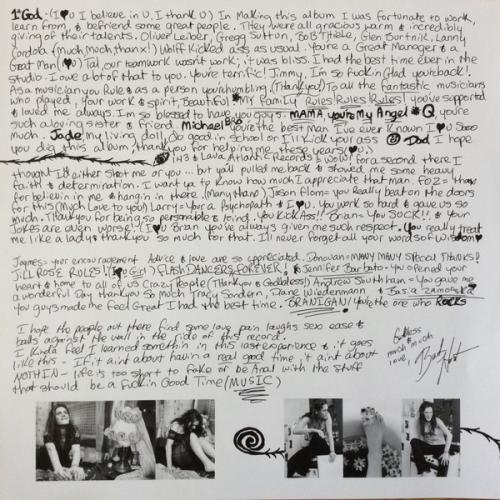 1st God - (I ♥ U I believe in U, I thank U) In Making this album I was fortunate to work,
learn from, & befriend some great people. They were all gracious warm & incredibly
giving of their talents. Oliver Leiber, Gregg Sutton, BoB Thiele, Glen Burtnik, Lanny
Cordola (Much, Much, thanx!) Wolff Kicked ass as usual. You're a Great Manager & a
Great Man (I ♥ U) Tal, our teamwork wasn't work; it was bliss. I had the best time ever in the
studio. I owe a lot of that to you. You're terrific! Jimmy, I'm so Fuckin Glad you're back!.
As a musician you Rule & as a person you're humbling (Thank you) To all the fantastic musicians
who played, Your work & spirit, Beautiful! My FAMILY Rules! Rules! Rules! you've supported
& loved me always. I'm so blessed to have you guys. MAMA, you're My Angel Q, you're
such a loving sister & friend Michael BRO you're the best Man I've ever Known I ♥ U Sooo
Much. Jade my living doll, Do good in School or I'll Kick you ass Dad I hope
you dig this album, thank you for helping me these years (I ♥ U)
143 & Lava Atlantic Records & WOW! for a second there I
thought I'd either shot me or you... but y'all pulled me back & showed me some heavy
faith & determination. I want ya to know how much I appreciate that man. F02= thanx
for believin in me & hangin in there. (Many thanx) Jason Flom= you Really beat on the doors
for this (Myth Love to you) Larry= Your a Psychopath & I ♥ U. You work so hard & gave us so
much. Thank you for being so personable & kind. You Kick Ass!! Brian= You SUCK!!. & Your
Jokes are even worse! (I ♥ U) Brian you've always given me such respect. You really treat
me like a lady & thank you so much for that. I'll never forget all your words of wisdom
Jaymes= your encouragement Advice & love are so appreciated. Donovan= MANY MANY Special THANKS!
Jill ROSE RULES! FLASHDANCERS FOREVER! & Jennifer Barbato= You opened your
heart & home to all of us Crazy People (Thank you & Goddbless) Andrew Southam= You gave me
a wonderful Day thank you so Much Tracy Sondern, Diane Wiedenmann & Basia ZAMORSKA
you guys made me feel Great I had the best time. BRANIGAN! You're the one who Rocks
I hope the people out there find some love pain laughs sex ease &
balls against the wall in the ride of this record.
I Kinda feel I learned somethin in this last experience & it goes
like this - If it aint about havin a real good time, it aint about
NOTHIN - life is too short to fake or be Anal with the stuff
that should be a Fuckin Good Time (MUSIC)
Godbless
much
love